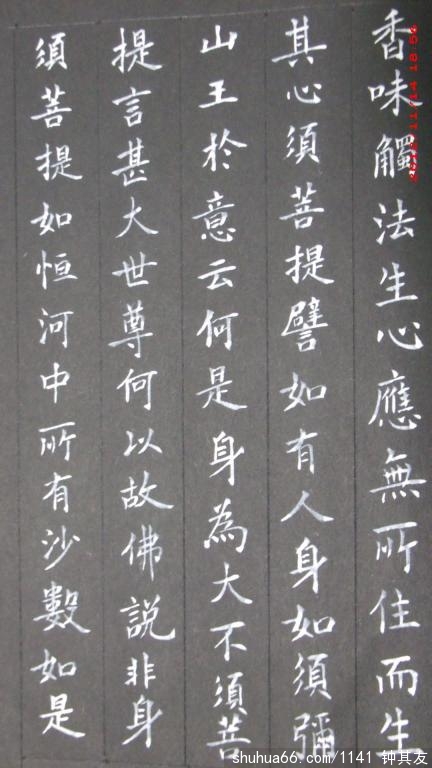 香味觸法生心應無所住而生
其心須菩提譬如有人身如須彌
山王於意云何是身為大不須菩
提言甚大世尊何以故佛說非身
須菩提如恒河中所有沙數如是
shuhua66.com/1141 钟其友